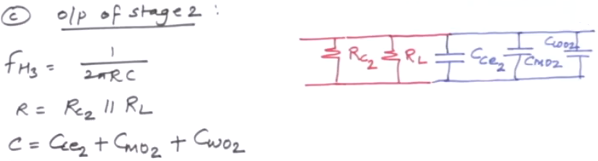 © o/p of stage 2 :
fH3 = 1 / 2πRC
R = RC2 || RL
C = Cce2 + CMO2 + CWO2
RC2 RL Cce2 CMO2 CWO2